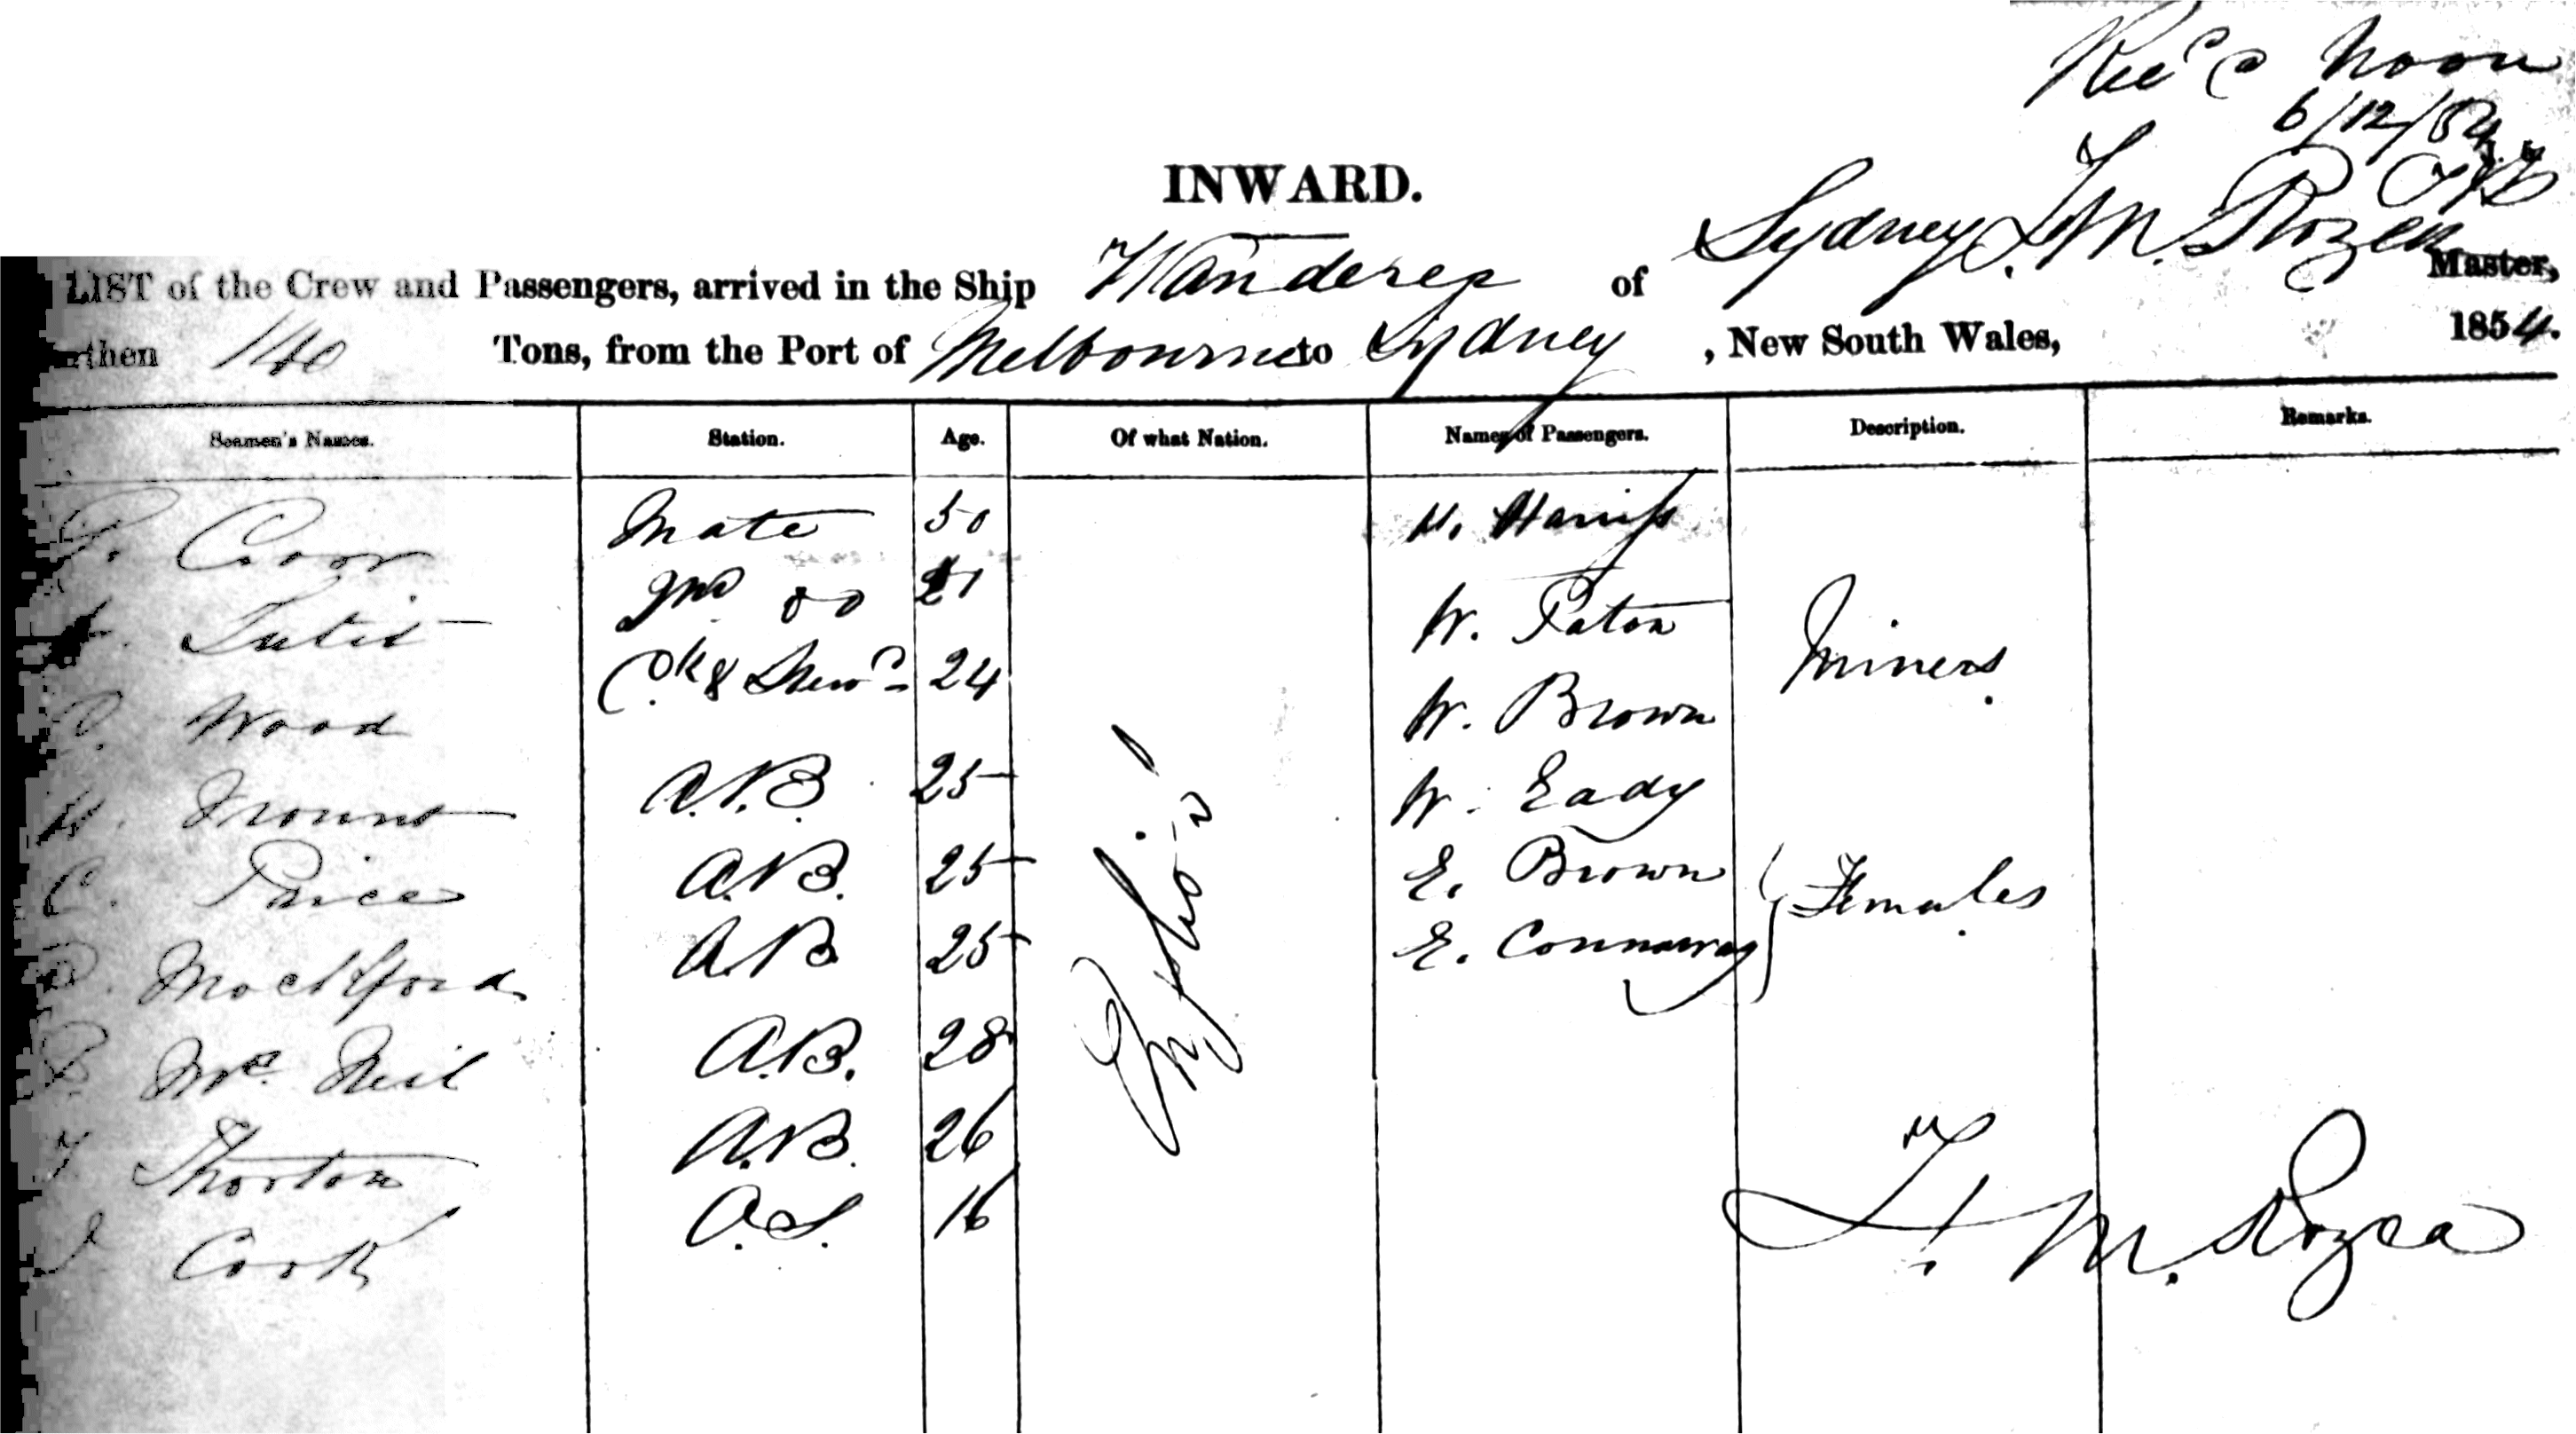 Rec'd Noon
6/12/54
INWARD.
LIST of the Crew and Passengers, arrived in the Ship Wanderer of Sydney, F. M. Rozea Master,
Burthen 140 Tons, from the Port of Melbourne to Sydney, New South Wales, 1854.
Seamen's Names. Station. Age. Of what Nation. Names of Passengers. Description. Remarks.
Coor Mate 50 Harriss
2nd Do 21 W. Paton
Wood Ck & Stewd 24 W. Brown Miners
H. Mount A.B. 25 W. Eady
C. Price A.B. 25 E. Brown Females
Mockford A.B. 25 E. Connaway
Mc Neil A.B. 28
Thorton A.B. 26
J Cook O.S. 16
F. M. Rozea